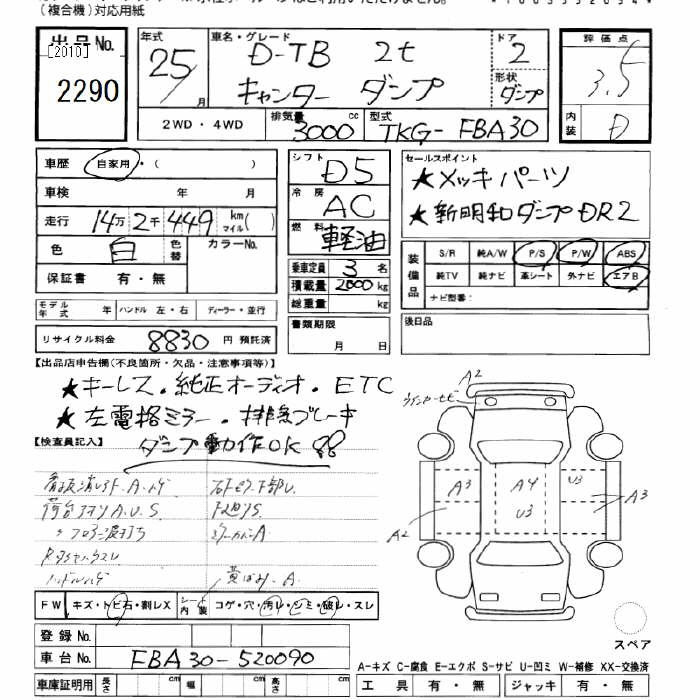 (複合機)対応用紙
出品No.
[2010]
2290
年式 25 月
車名・グレード D-TB 2t
キャンター ダンプ
ドア 2
形状 ダンプ
2WD・4WD
排気量 3000 cc
型式 TKG-FBA30
評価点 3.5
内装 D
車歴 自家用・( )
車検 年 月
走行 14万2千449 km マイル( )
色 白 色替 カラーNo.
保証書 有・無
モデル年式 年 ハンドル 左・右 ディーラー・並行
リサイクル料金 8830 円 預託済
シフト D5
冷房 AC
燃料 軽油
乗車定員 3 名
積載量 2000 kg
総重量 kg
書類期限 月 日
セールスポイント
★メッキパーツ
★新明和ダンプDR2
装備品 S/R 純A/W P/S P/W ABS
純TV 純ナビ 革シート 外ナビ エアB
ナビ型番:
後日品
【出品店申告欄(不良箇所・欠品・注意事項等)】
★キーレス・純正オーディオ・ETC
★左電格ミラー・排気ブレーキ
ダンプ動作OK
【検査員記入】
ハンドルハゲ
黄ばみ・A
FW キズ・トビ石・割レX シート内装 コゲ・穴・汚レ・シミ・破レ・スレ
登録No.
車台No. FBA30-520090
車庫証明用 長さ cm 幅 cm 高さ cm
A2
A3 A4 U3 A3
A2 U3
スペア
A-キズ C-腐食 E-エクボ S-サビ U-凹ミ W-補修 XX-交換済
工具 有・無 ジャッキ 有・無